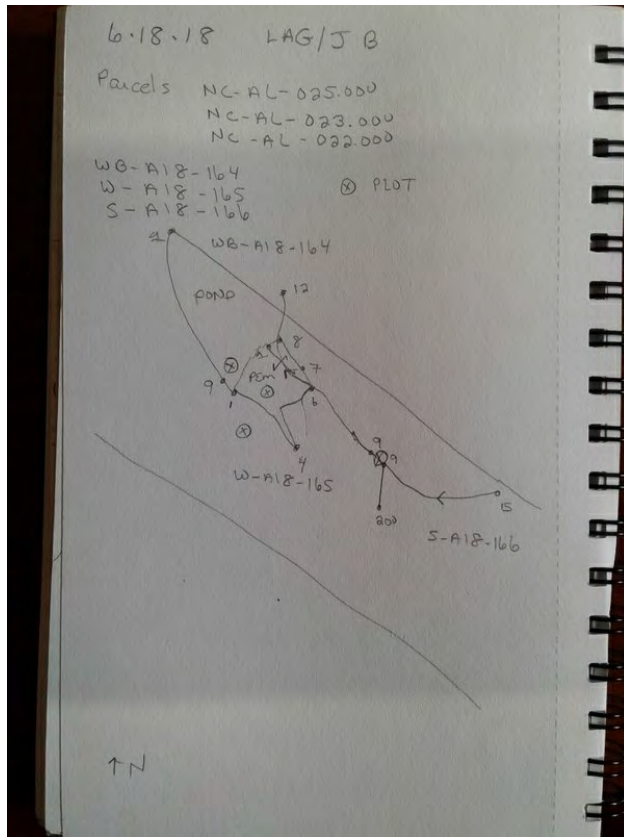 6.18.18 LAG/JB
Parcels NC-AL-025.000
NC-AL-023.000
NC-AL-022.000
WB-A18-164
W-A18-165
S-A18-166
⊗ PLOT
WB-A18-164
POND
12
8
7
PEM
9
1
6
4
W-A18-165
9
9
200
15
S-A18-166
↑N